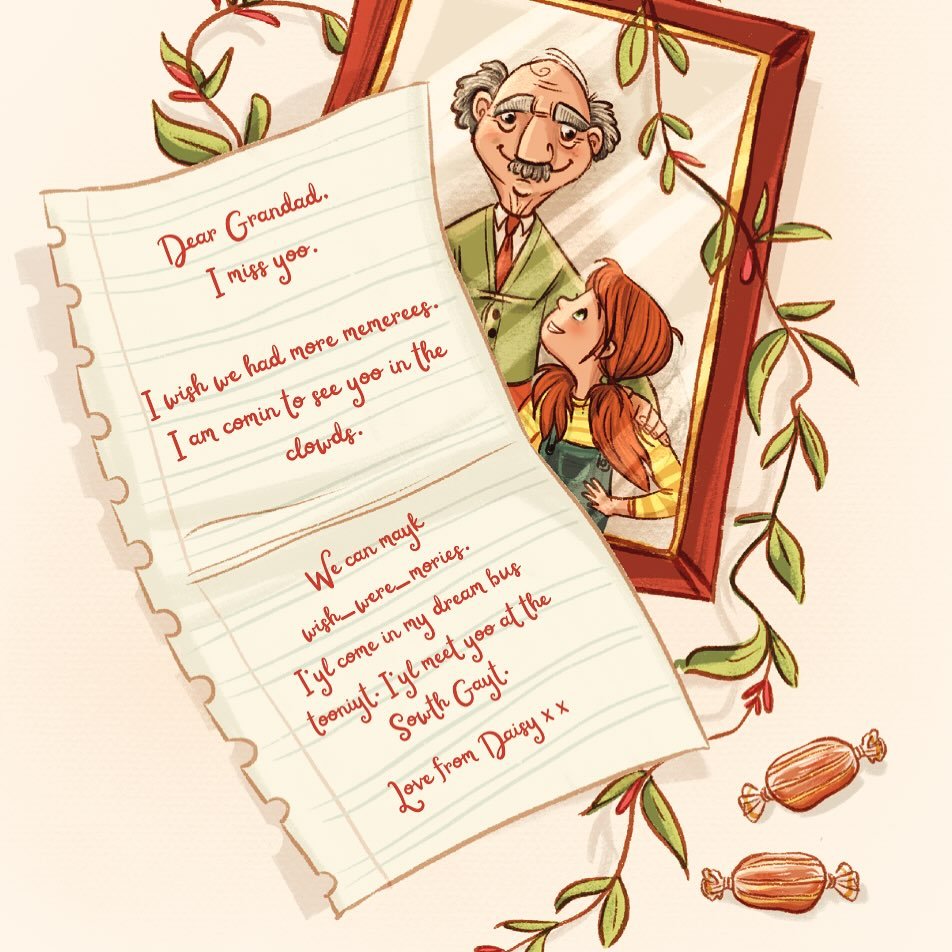 Dear Grandad.
I miss yoo.
I wish we had more memerees.
I am comin to see yoo in the
clowds.
We can mayk
wish_were_mories.
I'yl come in my dream bus
tooniyt. I'yl meet yoo at the
Sowth Gayt.
Love from Daisy x x